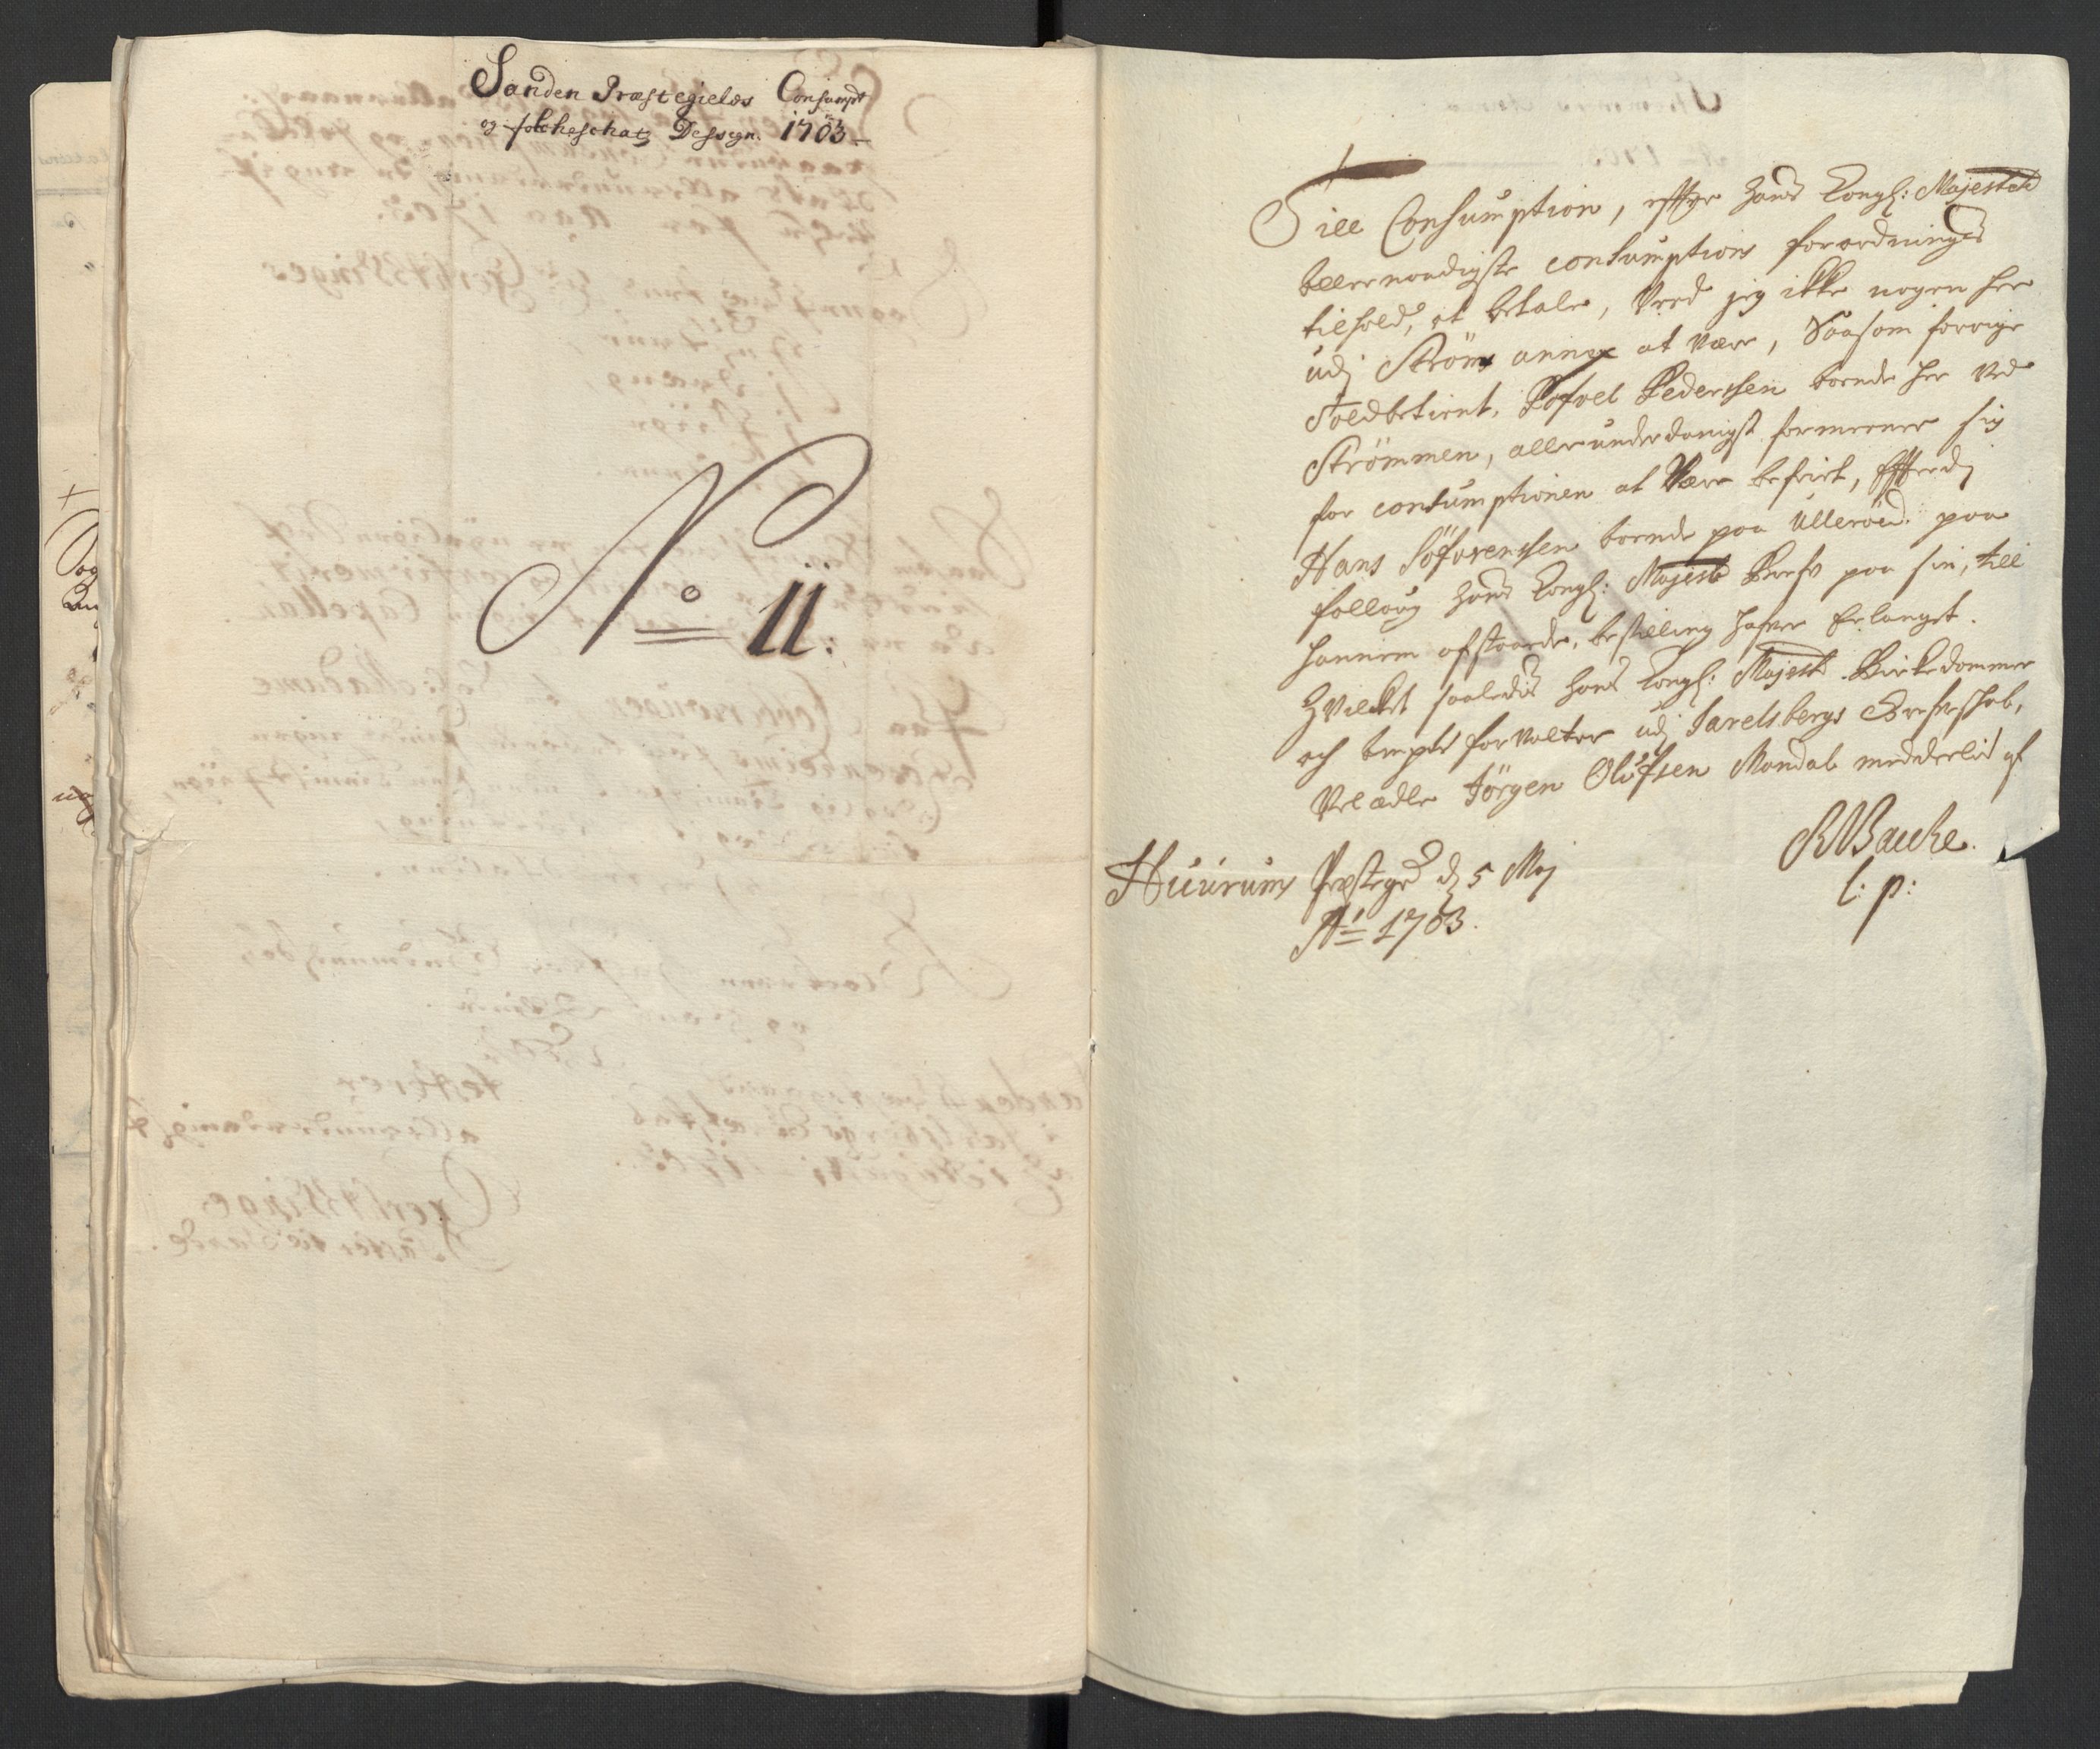 Sanden Præstegields Consumpt
og folcheschatz Dessegn. 1703
No 11:
Till Consumption, efftter hans Kongl: Majestets
allernaadigste consumptions forordninges
tilhold, at betale, Veed jeg ikke nogen her
udj Ström annex at være, Saasom forrige
Toldbetient, Pofvel Pedersen boende her ved
Strömmen, allerunderdanigst formeener sig
for consumptionen at Være befriet, Effterdj
Hans Söfvrenssen boende paa Ulleröed paa
følloug hans Kongl: Majests Brefv paa sin, till
hannem afstaaede, bestilling hafver Erlanget.
Hvilket saaledis hans Kongl: Majests Birkedommer
och ampts forvalter udj Jarelsbergs Grefveskab,
Vel ædle Jörgen Olüfsen Mandal meddeelis af
Huurums Præstegrd dj 5 Maj
Ao 1703.
l: p: